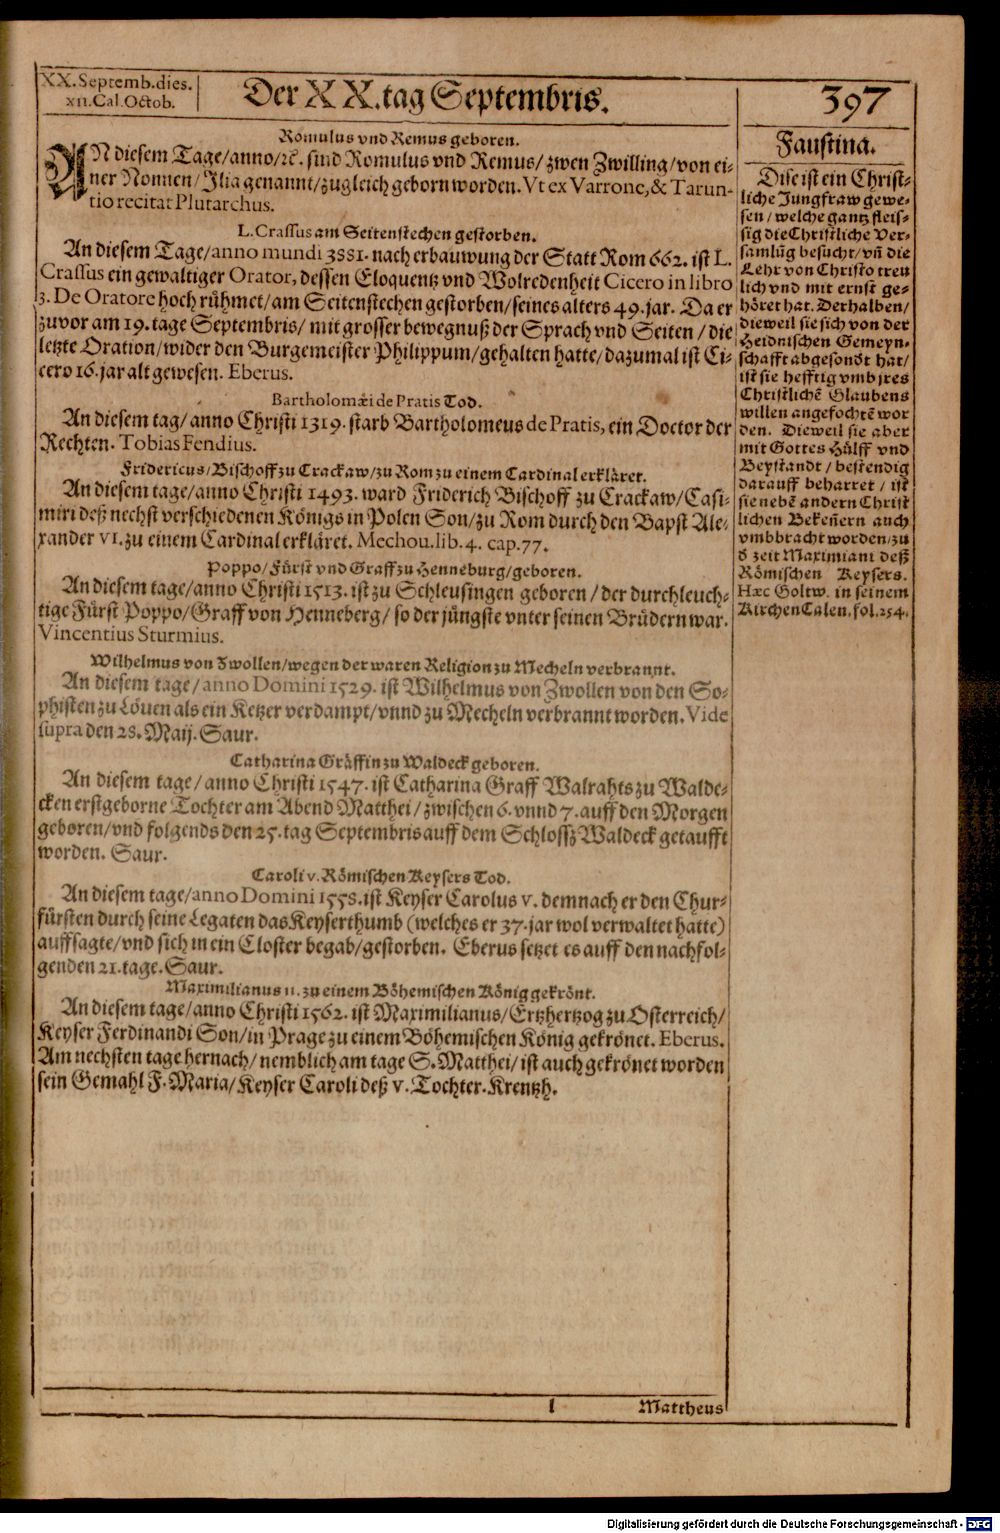 XX. Septemb. dies.
xii. Cal. Octob.
Der XX. tag Septembris.
397
Romulus vnd Remus geboren.
AN diesem Tage/anno/ꝛc. sind Romulus vnd Remus/zwen Zwilling/von ei-
ner Nonnen/Jlia genannt/zugleich geborn worden. Vt ex Varrone, & Tarun-
tio recitat Plutarchus.
L. Crassus am Seitenstechen gestorben.
An diesem Tage/anno mundi 3881. nach erbauwung der Statt Rom 662. ist L.
Crassus ein gewaltiger Orator, dessen Eloquentz vnd Wolredenheit Cicero in libro
3. De Oratore hoch rühmet/am Seitenstechen gestorben/seines alters 49. jar. Da er
zuvor am 19. tage Septembris/ mit grosser bewegnuß der Sprach vnd Seiten / die
letzte Oration/wider den Burgemeister Philippum/gehalten hatte/dazumal ist Ci-
cero 16. jar alt gewesen. Eberus.
Bartholomæi de Pratis Tod.
An diesem tag/anno Christi 1319. starb Bartholomeus de Pratis, ein Doctor der
Rechten. Tobias Fendius.
Fridericus/Bischoff zu Crackaw/zu Rom zu einem Cardinal erkläret.
An diesem tage/anno Christi 1493. ward Friderich Bischoff zu Crackaw/Casi-
miri deß nechst verschiedenen Königs in Polen Son/zu Rom durch den Bapst Ale-
xander VI. zu einem Cardinal erkläret. Mechou. lib. 4. cap. 77.
Poppo/Fürst vnd Graff zu Henneburg/geboren.
An diesem tage/anno Christi 1513. ist zu Schleusingen geboren / der durchleuch-
tige Fürst Poppo/Graff von Henneberg/ so der jüngste vnter seinen Brüdern war.
Vincentius Sturmius.
Wilhelmus von Zwollen/wegen der waren Religion zu Mecheln verbrannt.
An diesem tage/anno Domini 1529. ist Wilhelmus von Zwollen von den So-
phisten zu Löuen als ein Ketzer verdampt/vnnd zu Mecheln verbrannt worden. Vide
supra den 28. Maij. Saur.
Catharina Gräffin zu Waldeck geboren.
An diesem tage/anno Christi 1547. ist Catharina Graff Walrahts zu Walde-
cken erstgeborne Tochter am Abend Matthei/zwischen 6. vnnd 7. auff den Morgen
geboren/vnd folgends den 25. tag Septembris auff dem Schlossz Waldeck getaufft
worden. Saur.
Caroli v. Römischen Keysers Tod.
An diesem tage/anno Domini 1558. ist Keyser Carolus v. demnach er den Chur-
fürsten durch seine Legaten das Keyserthumb (welches er 37. jar wol verwaltet hatte)
auffsagte/vnd sich in ein Closter begab/gestorben. Eberus setzet es auff den nachfol-
genden 21. tage. Saur.
Maximilianus ii. zu einem Böhemischen König gekrönt.
An diesem tage/anno Christi 1562. ist Maximilianus/Ertzhertzog zu Osterreich/
Keyser Ferdinandi Son/in Prage zu einem Böhemischen König gekrönet. Eberus.
Am nechsten tage hernach/ nemblich am tage S. Matthei/ ist auch gekrönet worden
sein Gemahl F. Maria/Keyser Caroli deß v. Tochter. Krentzh.
Faustina.
Dise ist ein Christ-
liche Jungfraw gewe-
sen/welche gantz fleis-
sig die Christliche Ver-
samlũg besucht/vñ die
Lehr von Christo treu
lich vnd mit ernst ge-
höret hat. Derhalben/
dieweil sie sich von der
Heidnischen Gemeyn-
schafft abgesondt hat/
ist sie hefftig vmb jres
Christlichẽ Glaubens
willen angefochtẽ wor
den. Dieweil sie aber
mit Gottes Hülff vnd
Beystandt / bestendig
darauff beharret / ist
sie nebẽ andern Christ
lichen Bekeñern auch
vmbbracht worden/zu
d zeit Maximiani deß
Römischen Keysers.
Hæc Goltw. in seinem
Kirchen Calen. fol. 254.
l
Mattheus
Digitalisierung gefördert durch die Deutsche Forschungsgemeinschaft - DFG